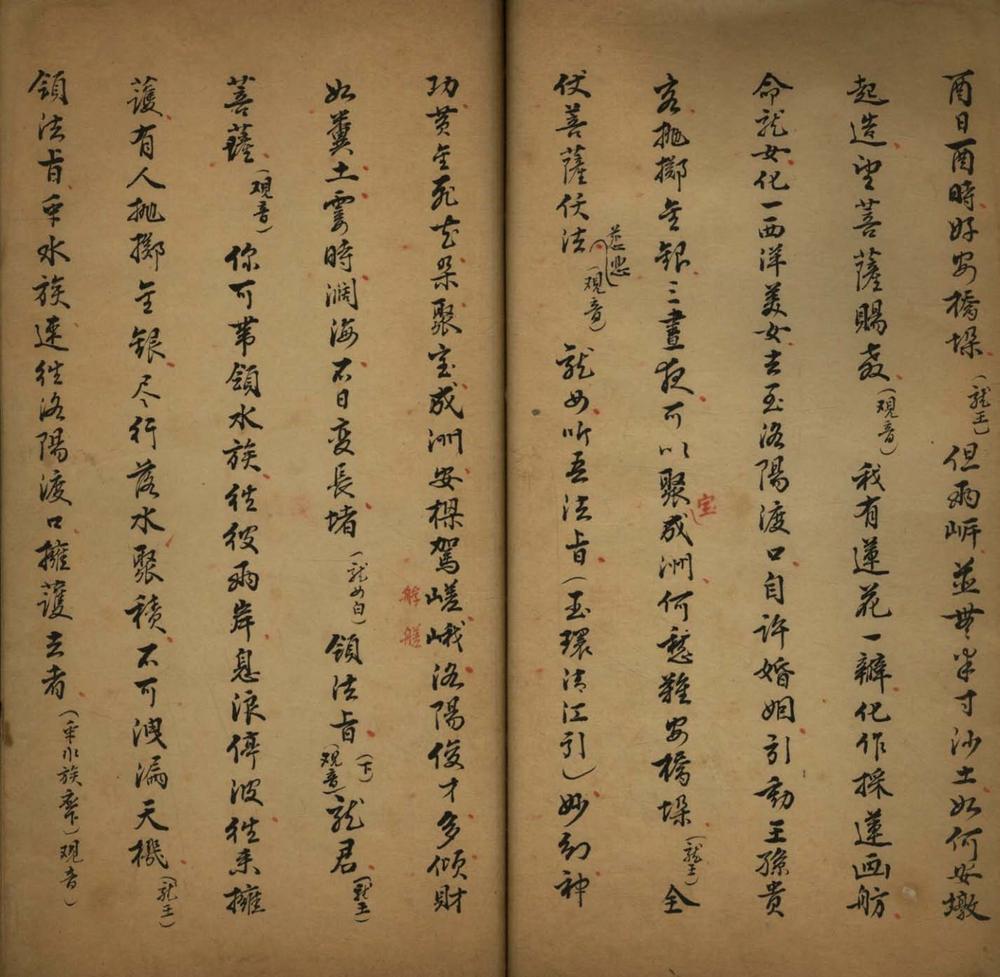 酉日酉時好安橋垜（龍王）但兩岍並無半寸沙土如何安墩
起造望菩薩賜教（觀音）我有蓮花一瓣化作採蓮画舫
命龍女化一西洋美女去至洛陽渡口自許婚姻引動王孫貴
客抛擲金銀三晝夜可以聚宝成洲何愁难安橋垜（龍王）全
伏菩薩仗法慈悲（观音）龍女听吾法旨（玉環清江引）妙幻神
功黄金死花朵聚宝成洲安樑駕嵯峨洛陽俊才多傾財
如糞土霎時涸海不日变長堵（龍女白）領法旨（下）（观音）龍君（龍王）
菩薩（观音）你可带領水族徃彼兩岸息浪停波徃来擁
護有人抛擲金銀尽行落水聚積不可洩漏天機（龍王）
領法旨众水族速徃洛陽渡口擁護去者（众水族齐下）观音）